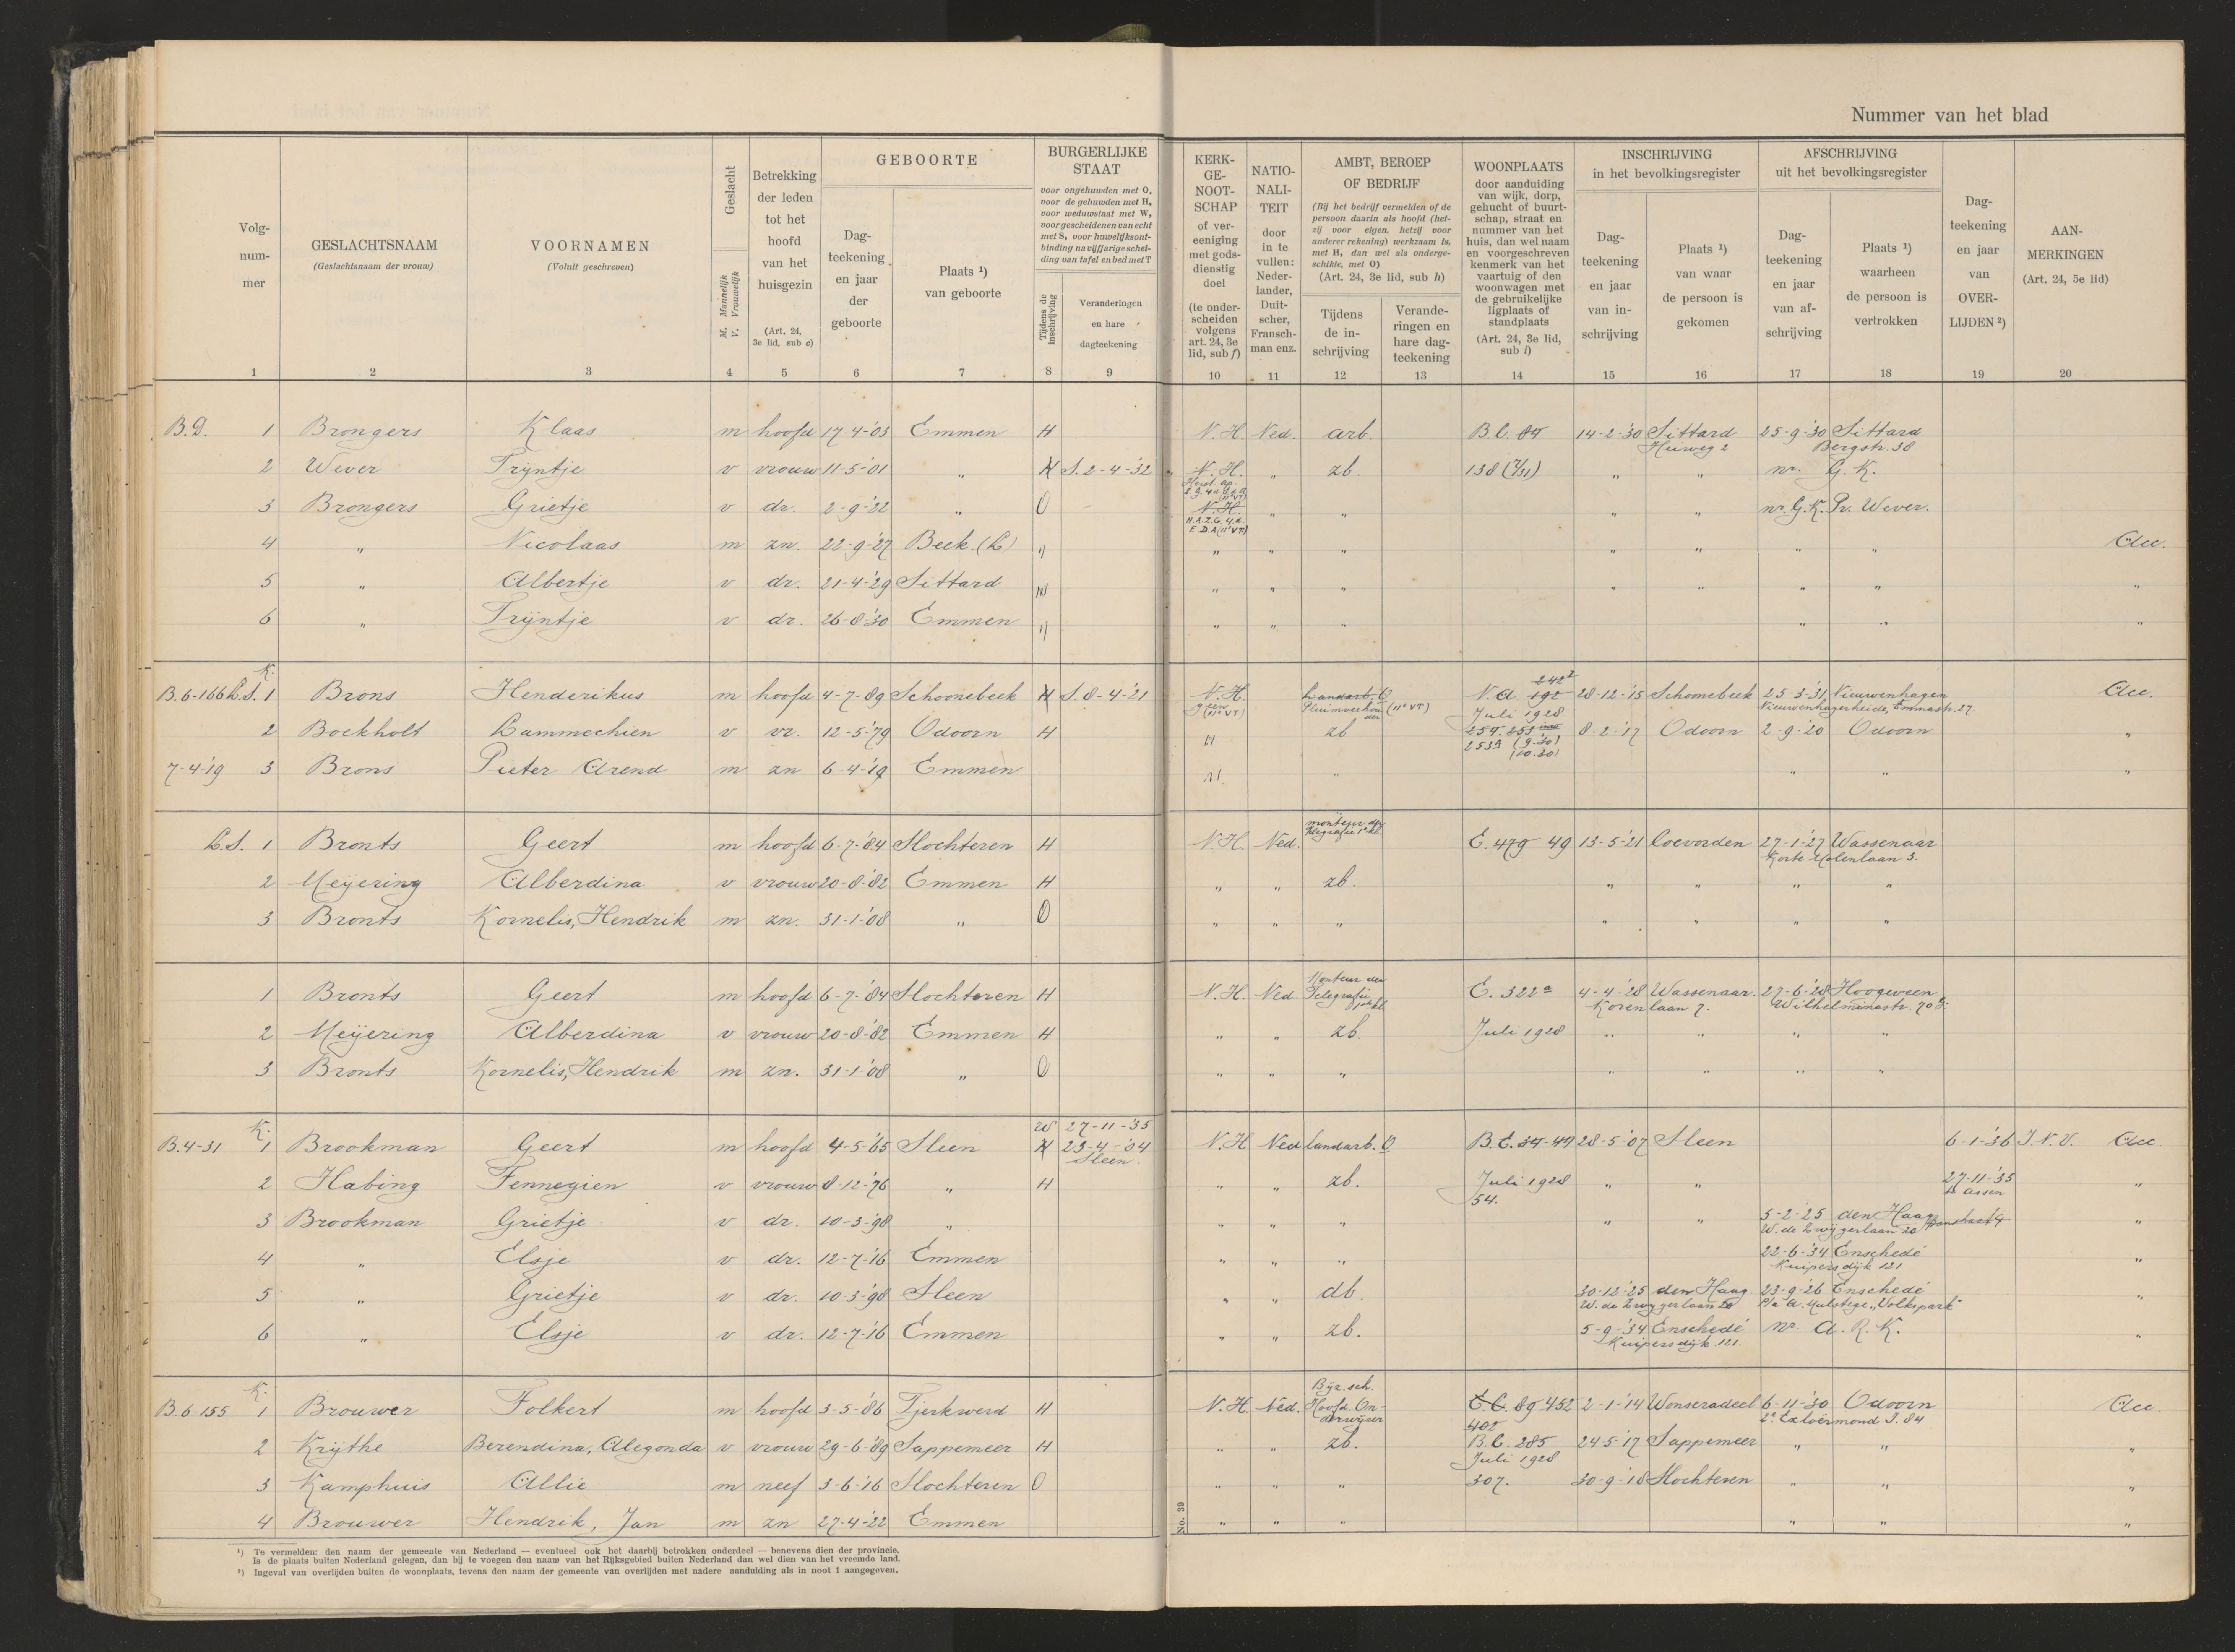 Nummer van het blad
Volg-
num-
mer
GESLACHTSNAAM
(Geslachtsnaam der vrouw)
VOORNAMEN
(Voluit geschreven)
Geslacht
M. Mannelijk
V. Vrouwelijk
Betrekking
der leden
tot het
hoofd
van het
huisgezin
(Art. 24,
3e lid, sub e)
GEBOORTE
Dag-
teekening
en jaar
der
geboorte
Plaats ¹)
van geboorte
BURGERLIJKE
STAAT
voor ongehuwden met O,
voor de gehuwden met H,
voor weduwstaat met W,
voor gescheidenen van echt
met S, voor huwelijksont-
binding na vijfjarige schei-
ding van tafel en bed met T
Tijdens de
inschrijving
Veranderingen
en hare
dagteekening
KERK-
GE-
NOOT-
SCHAP
of ver-
eeniging
met gods-
dienstig
doel
(te onder-
scheiden
volgens
art. 24, 3e
lid, sub f)
NATIO-
NALI-
TEIT
door
in te
vullen:
Neder-
lander,
Duit-
scher,
Fransch-
man enz.
AMBT, BEROEP
OF BEDRIJF
(Bij het bedrijf vermelden of de
persoon daarin als hoofd (het-
zij voor eigen, hetzij voor
anderer rekening) werkzaam is,
met H, dan wel als onderge-
schikte, met O)
(Art. 24, 3e lid, sub h)
Tijdens
de in-
schrijving
Verande-
ringen en
hare dag-
teekening
WOONPLAATS
door aanduiding
van wijk, dorp,
gehucht of buurt-
schap, straat en
nummer van het
huis, dan wel naam
en voorgeschreven
kenmerk van het
vaartuig of den
woonwagen met
de gebruikelijke
ligplaats of
standplaats
(Art. 24, 3e lid,
sub i)
INSCHRIJVING
in het bevolkingsregister
Dag-
teekening
en jaar
van in-
schrijving
Plaats ¹)
van waar
de persoon is
gekomen
AFSCHRIJVING
uit het bevolkingsregister
Dag-
teekening
en jaar
van af-
schrijving
Plaats ¹)
waarheen
de persoon is
vertrokken
Dag-
teekening
en jaar
van
OVER-
LIJDEN ²)
AAN-
MERKINGEN
(Art. 24, 5e lid)
1 2 3 4 5 6 7 8 9 10 11 12 13 14 15 16 17 18 19 20
B.D. 1 Brongers Klaas m hoofd 17-4-'03 Emmen H N.H. Ned. arb. B.C. 84 14-2-'30 Sittard 25-9-'30 Sittard
Heiweg 2 Bergstr. 38
2 Wever Trijntje v vrouw 11-5-'01 " H S. 2-4-'32 N.H. " zb. 138 (7/31) " " nr. G.K.
3 Brongers Grietje v dr. 2-9-'22 " O N.H. " " " " nr. G.K. Pr. Wever.
4 " Nicolaas m zn. 22-9-'27 Beek (L) " " " " " " " " Acc.
5 " Albertje v dr. 21-4-'29 Sittard " " " " " " " " "
6 " Trijntje v dr. 26-8-'30 Emmen " " " " " " "
K.
B.6-166 L.S. 1 Brons Henderikus m hoofd 4-7-'89 Schoonebeek H S. 8-4-'21 N.H. Landarb. O N.A. 192 242² 28-12-'15 Schoonebeek 25-3-'31 Nieuwenhagen Acc.
geen (11e VT) Pluimveehouder (11e VT) Juli 1928 Nieuwenhagerheide, Emmastr. 27
2 Bockholt Lammechien v vr. 12-5-'79 Odoorn H H zb 254. 253 8-2-'17 Odoorn 2-9-'20 Odoorn "
253a (9.30)
(10.30)
7-4-'19 3 Brons Pieter Arend m zn 6-4-'19 Emmen " " " "
L.S. 1 Bronts Geert m hoofd 6-7-'84 Slochteren H N.H. Ned. monteur der telegrafie 1e kl. E. 479 49 13-5-'21 Coevorden 27-1-'27 Wassenaar
Korte Molenlaan 3.
2 Meijering Alberdina v vrouw 20-8-'82 Emmen H " " zb. " " " "
3 Bronts Kornelis, Hendrik m zn. 31-1-'08 " O " " " " " " "
1 Bronts Geert m hoofd 6-7-'84 Slochteren H N.H. Ned. Monteur der Telegrafie 1e kl. E. 322a 4-4-'28 Wassenaar. 27-6-'28 Hoogeveen
Korenlaan 7. Wilhelminastr. 70
2 Meijering Alberdina v vrouw 20-8-'82 Emmen H " " zb. Juli 1928 " " " "
3 Bronts Kornelis, Hendrik m zn. 31-1-'08 " O " " " " " " "
K. W 27-11-'35
B.4-31 1 Brookman Geert m hoofd 4-5-'65 Sleen H 23-4-'04 N.H. Ned landarb. O B.E. 34-47 28-5-'07 Sleen 6-1-'36 I.N.V. Acc.
Sleen.
2 Habing Fennegien v vrouw 8-12-'76 " H " " zb. Juli 1928 " " 27-11-'35 "
54. te Assen
3 Brookman Grietje v dr. 10-3-'98 " " " " " " 5-2-'25 den Haag "
W. de Zwijgerlaan 20
4 " Elsje v dr. 12-7-'16 Emmen " " " 22-6-'34 Enschedé "
Kuipersdijk 121
5 " Grietje v dr. 10-3-'98 Sleen " " db. 30-12-'25 den Haag 23-9-'26 Enschedé "
W. de Zwijgerlaan 20 P/a A. Mulstege, "Volkspark"
6 " Elsje v dr. 12-7-'16 Emmen " " zb. 5-9-'34 Enschedé nr. A.R.K. "
Kuipersdijk 121.
K. Bijz. sch.
B.6-155 1 Brouwer Folkert m hoofd 3-5-'86 Tjerkwerd H N.H. Ned. Hoofd. Onderwijzer E.C. 89 452 2-1-'14 Wonseradeel 6-11-'30 Odoorn Acc.
402 2e Exloërmond J. 84
2 Krijthe Berendina, Alegonda v vrouw 29-6-'89 Sappemeer H " " zb. B.C. 285 24-5-'17 Sappemeer " " "
Juli 1928
3 Kamphuis Allie m neef 3-6-'16 Slochteren O " " " 307. 30-9-'18 Slochteren " " "
4 Brouwer Hendrik, Jan m zn 27-4-'22 Emmen " " " " " "
No. 39
¹) Te vermelden: den naam der gemeente van Nederland — eventueel ook het daarbij betrokken onderdeel — benevens dien der provincie.
Is de plaats buiten Nederland gelegen, dan bij te voegen den naam van het Rijksgebied buiten Nederland dan wel dien van het vreemde land.
²) Ingeval van overlijden buiten de woonplaats, tevens den naam der gemeente van overlijden met nadere aanduiding als in noot 1 aangegeven.